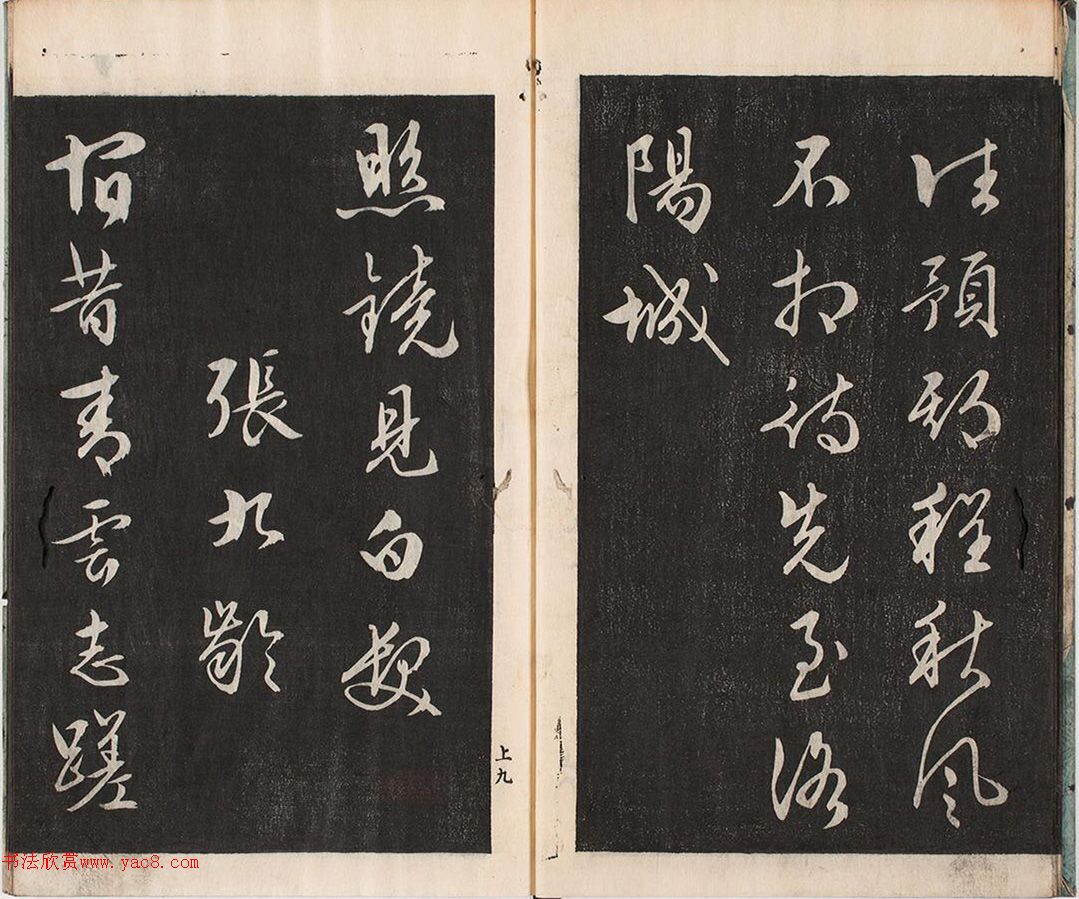 往預期程秋風
不相待先至洛
陽城
照鏡見白髮
張九齡
宿昔青雲志蹉
上九
书法欣赏www.yac8.com